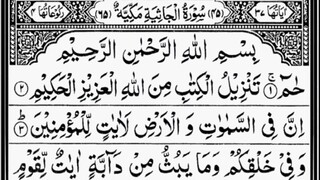 اٰیَاتُهَا ٣٧ (٤٥) سُوْرَةُ الْجَاثِيَةِ مَكِّيَّةٌ (٦٥) رُكُوْعَاتُهَا ٤
بِسْمِ اللّٰهِ الرَّحْمٰنِ الرَّحِيْمِ
حٰمٓ ۚ ١ تَنْزِيْلُ الْكِتٰبِ مِنَ اللّٰهِ الْعَزِيْزِ الْحَكِيْمِ ٢
اِنَّ فِى السَّمٰوٰتِ وَ الْاَرْضِ لَاٰيٰتٍ لِّلْمُؤْمِنِيْنَ ؕ ٣
وَفِىْ خَلْقِكُمْ وَمَا يَبُثُّ مِنْ دَآبَّةٍ اٰيٰتٌ لِّقَوْمٍ